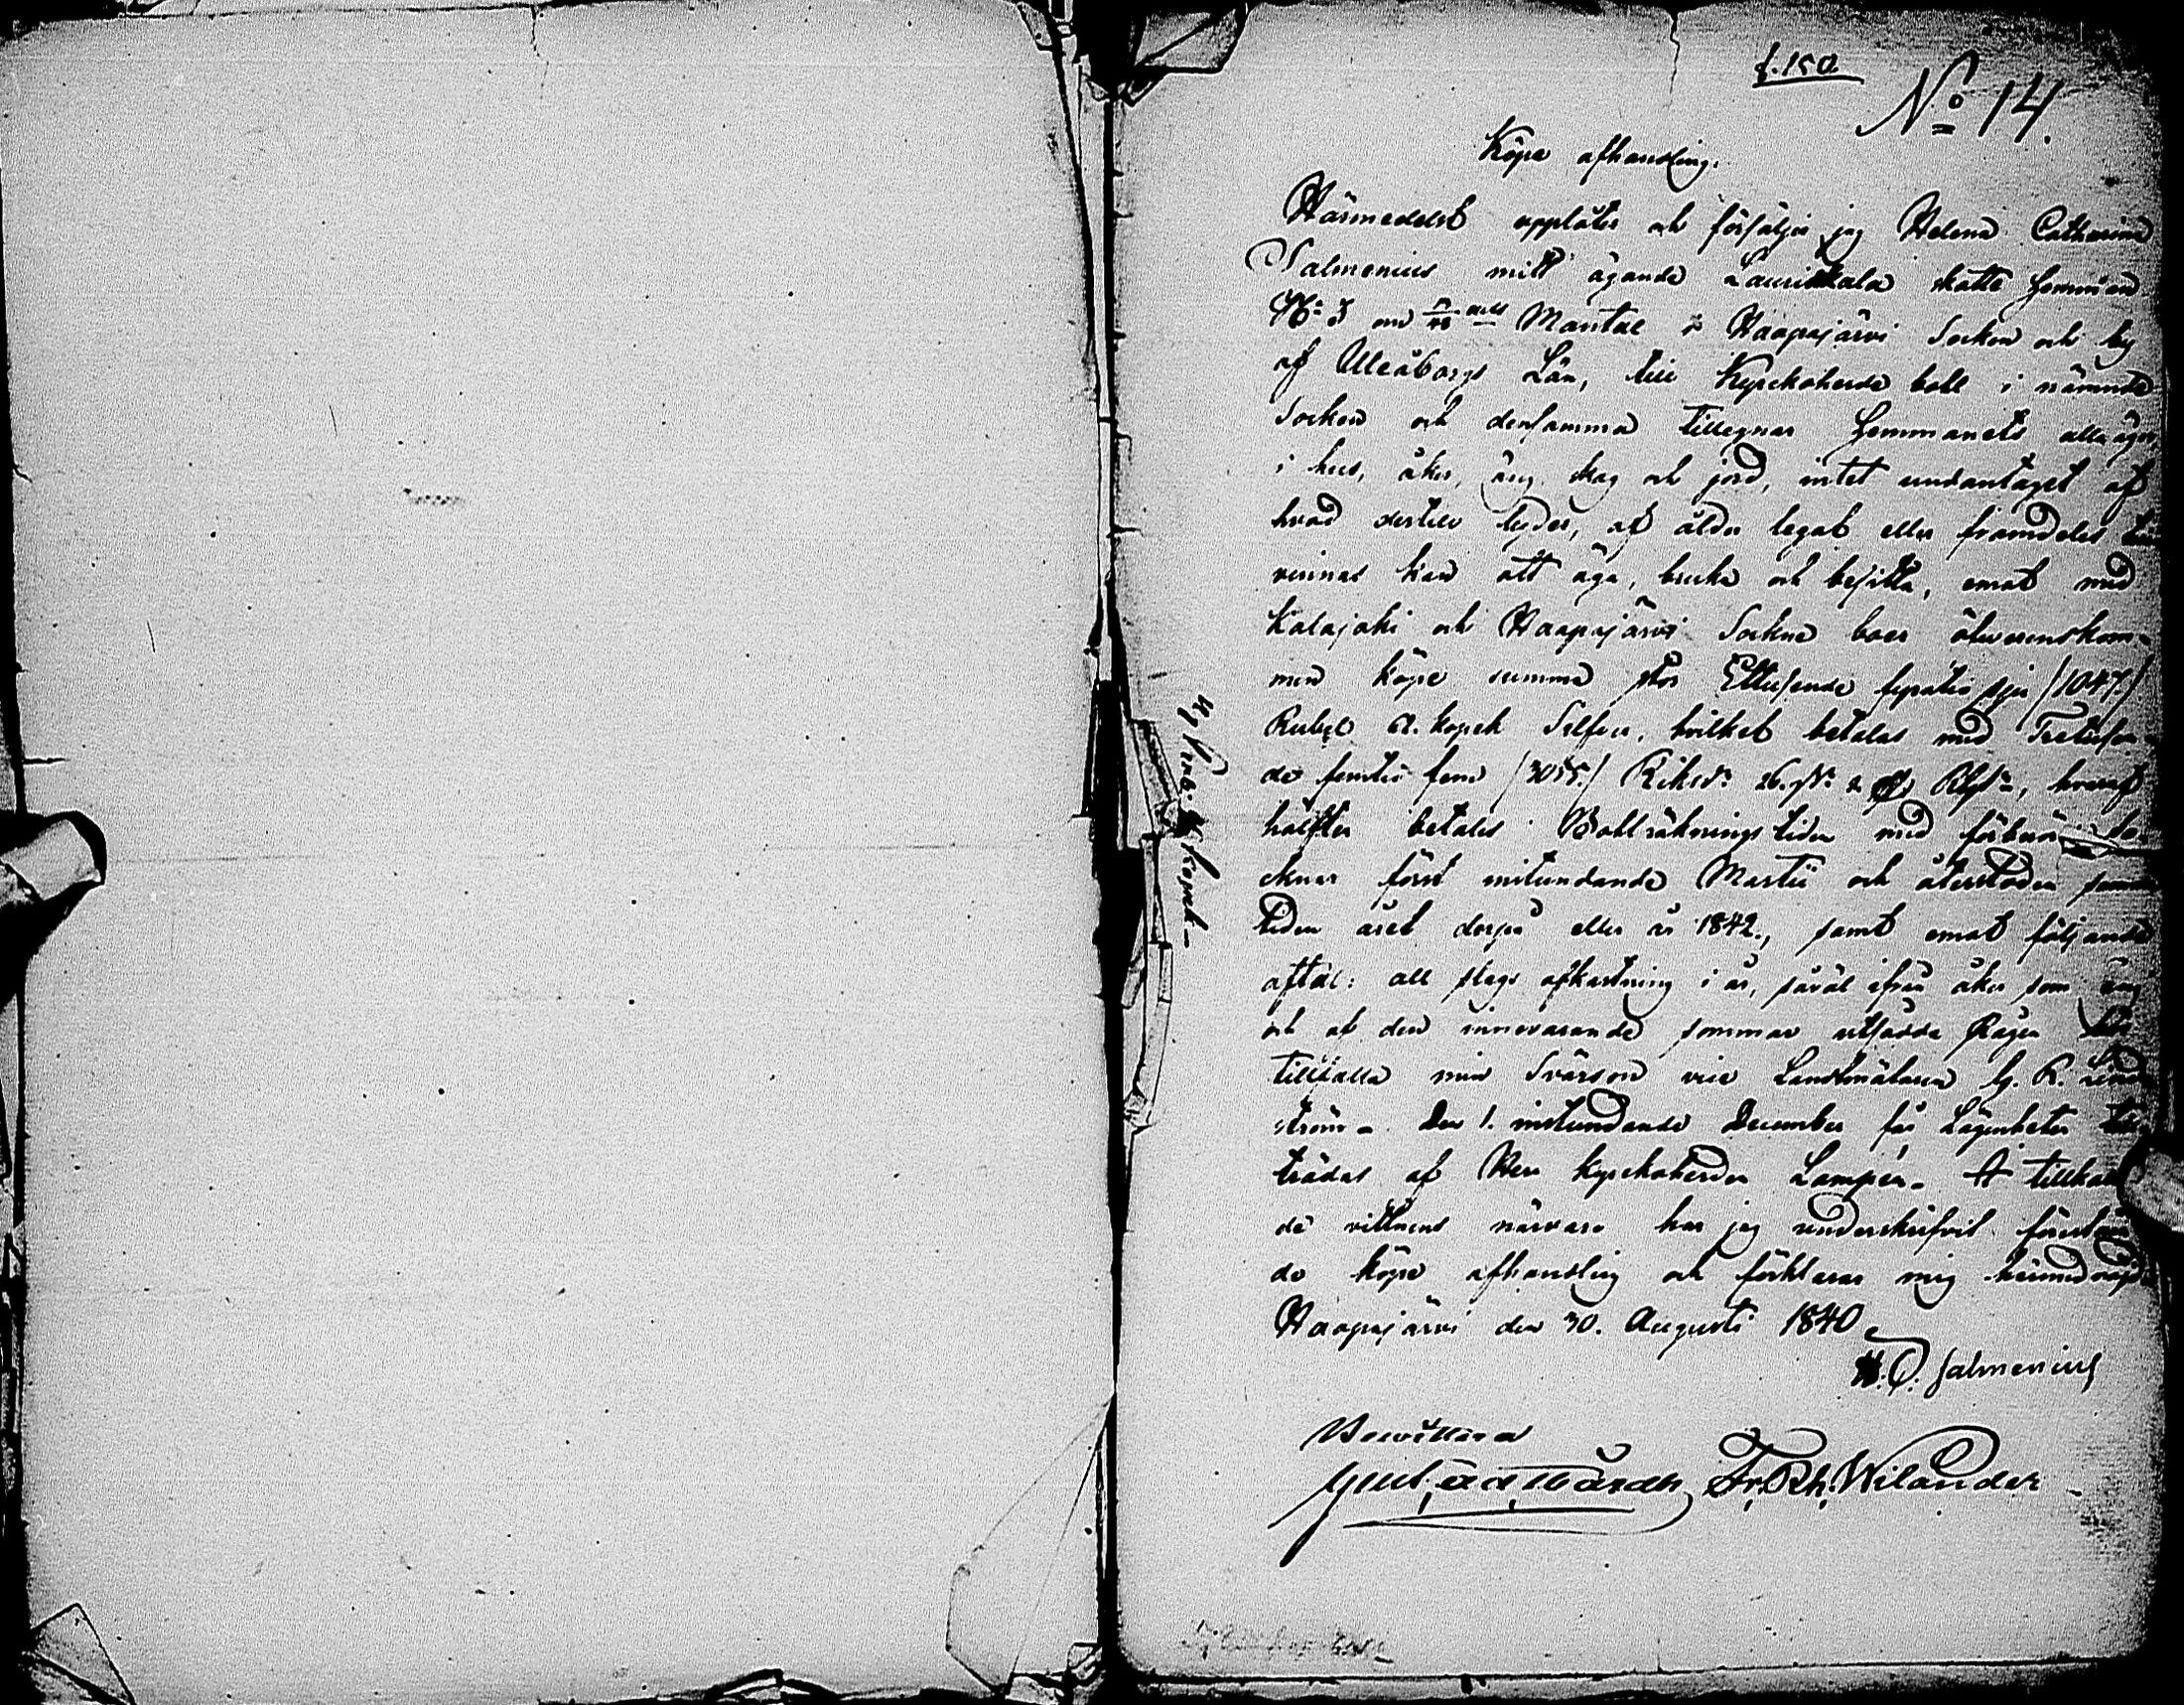 f. 150.
No 14.
Köpe afhandling.
Härmedelst upplåter och försäljer jag Helena Catharina
Salmenius mitt ägande Lauriskala skatte hemman
No 3 om Mantal i Haapajärvi Socken och by
af Uleåborgs Län, till Kyrckoherde boll i nämnde
Socken och densamma tillegnar hemmanets alla ägor
i hus, åker, äng skog och jord, intet undantaget af
hvad dertill lyder, af ålder legat eller framdeles
vinnas kan att äga, bruka och besitta, emot med
Kalajoki och Haapajärvi Sockne boer öfverenskom-
men köpe summa stor Ettusende fyratio sju /1047./
Rubel kopek Silfver, hvilket betalas med Tretusen
de femtio fem /3055./ Riksd. 26. s. Rgs, hvaraf
hälften betales Bollräknings tiden med
först instundande Martii och återstoden samma
tiden året derpå eller år 1842., samt emot följande
aftal: all slags afkastning i år, såväl ifrån åker som äng
och af den innevarande sommar utsådda Rågen
tillfalla min Svärson vice Landtmätaren G. R. Lind
ström. Den 1. instundande December får Lägenheten till
trädas af Herr Kyrckoherden Lampén. I tillkallade
de vittnens närvaro har jag underskrifvit förestående
de köpe afhandling och förklarar mig härmed nöjd
Haapajärvi den 30. Augusti 1840
H. C. Salmenius
Bewittna
Fr. Reh. Wilander
kopek